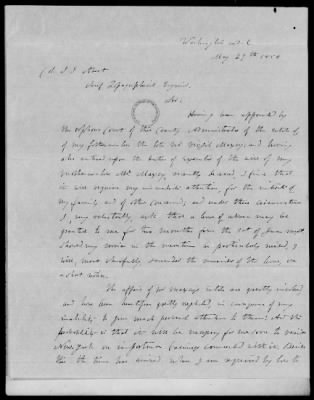 Washington D. C.
May 29th 1850
Col. J. J. Abert
Chief Topographical Engineers
Sir,
Having been appointed by
the Orphans Court of this County Administrator of the estate
of my father in law the late Virgil Maxcy; and having
also entered upon the duties of Executor of the will of my
mother in law Mrs Maxcy recently deceased, I find that
it will require my immediate attention, for the interest of
my family and of others concerned; and under these circumstances
I, very reluctantly, ask that a leave of absence may be
granted to me for two months from the 1st of June next.
Should my services in the meantime be particularly needed, I
will, most cheerfully surrender the remainder of the leave, on
a short notice.
The affairs of Mr Maxcy's estate are greatly involved
and have been heretofore greatly neglected, in consequence of my
inability to give much personal attention to them: And the
probability is that it will be necessary for me soon to visit
New York on important business connected with it. Besides
this the time has arrived when I am required by law to